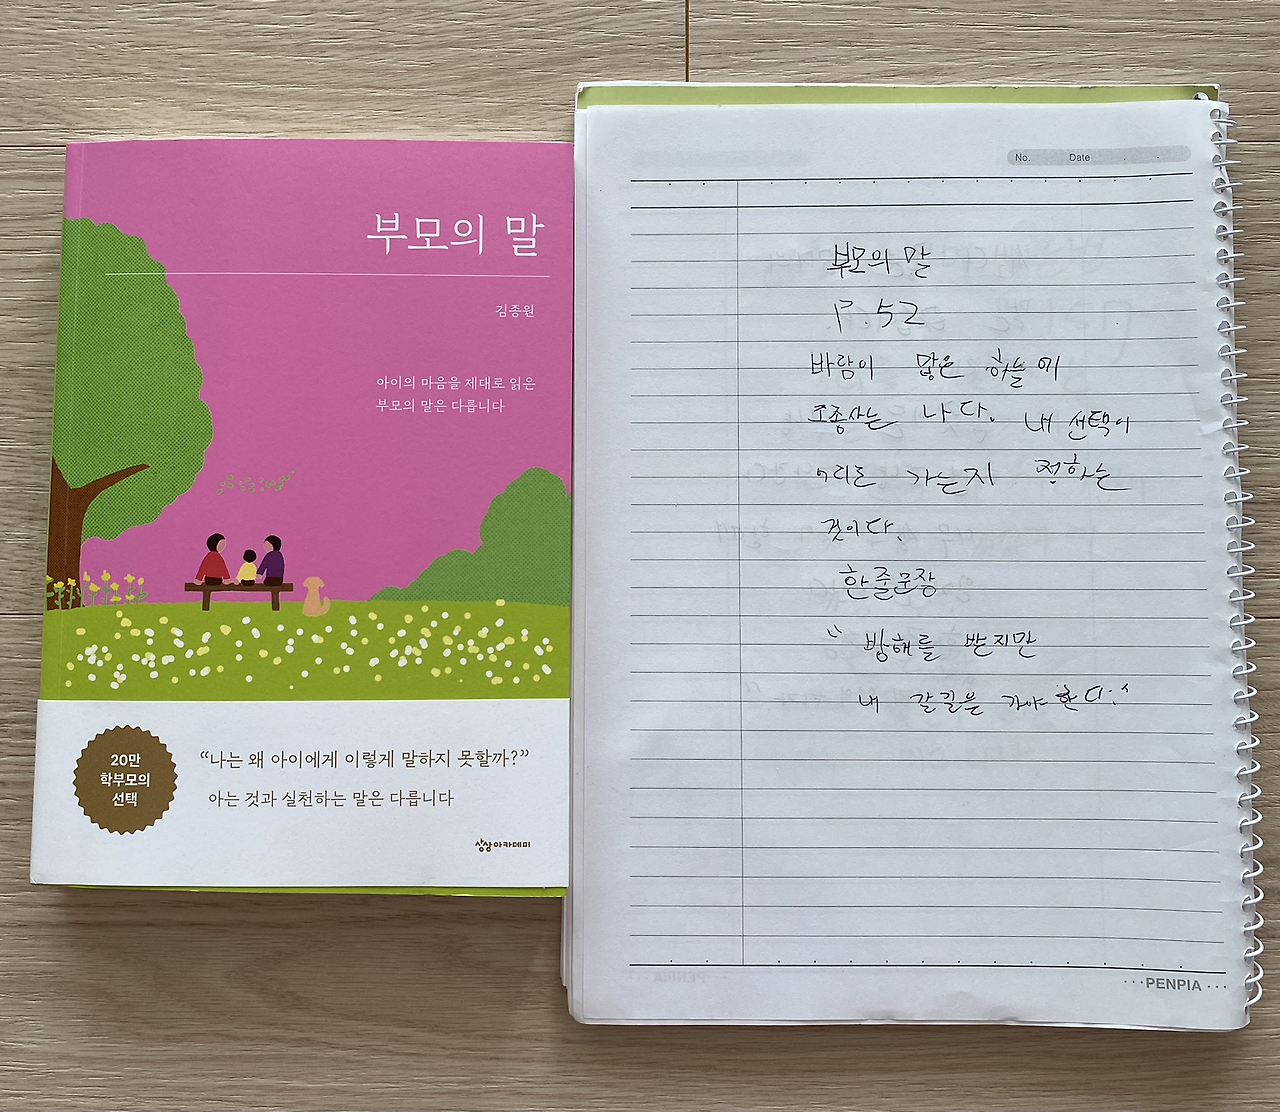 부모의 말
김종원
아이의 마음을 제대로 읽은
부모의 말은 다릅니다
20만
학부모의
선택
“나는 왜 아이에게 이렇게 말하지 못할까?”
아는 것과 실천하는 말은 다릅니다
상상아카데미
No. Date
부모의 말
P.52
바람이 많은 하늘에
조종사는 나다. 내 선택이
어디로 가는지 정하는
것이다.
한줄문장
“방해를 받지만
내 갈길은 가야 한다.”
PENPIA